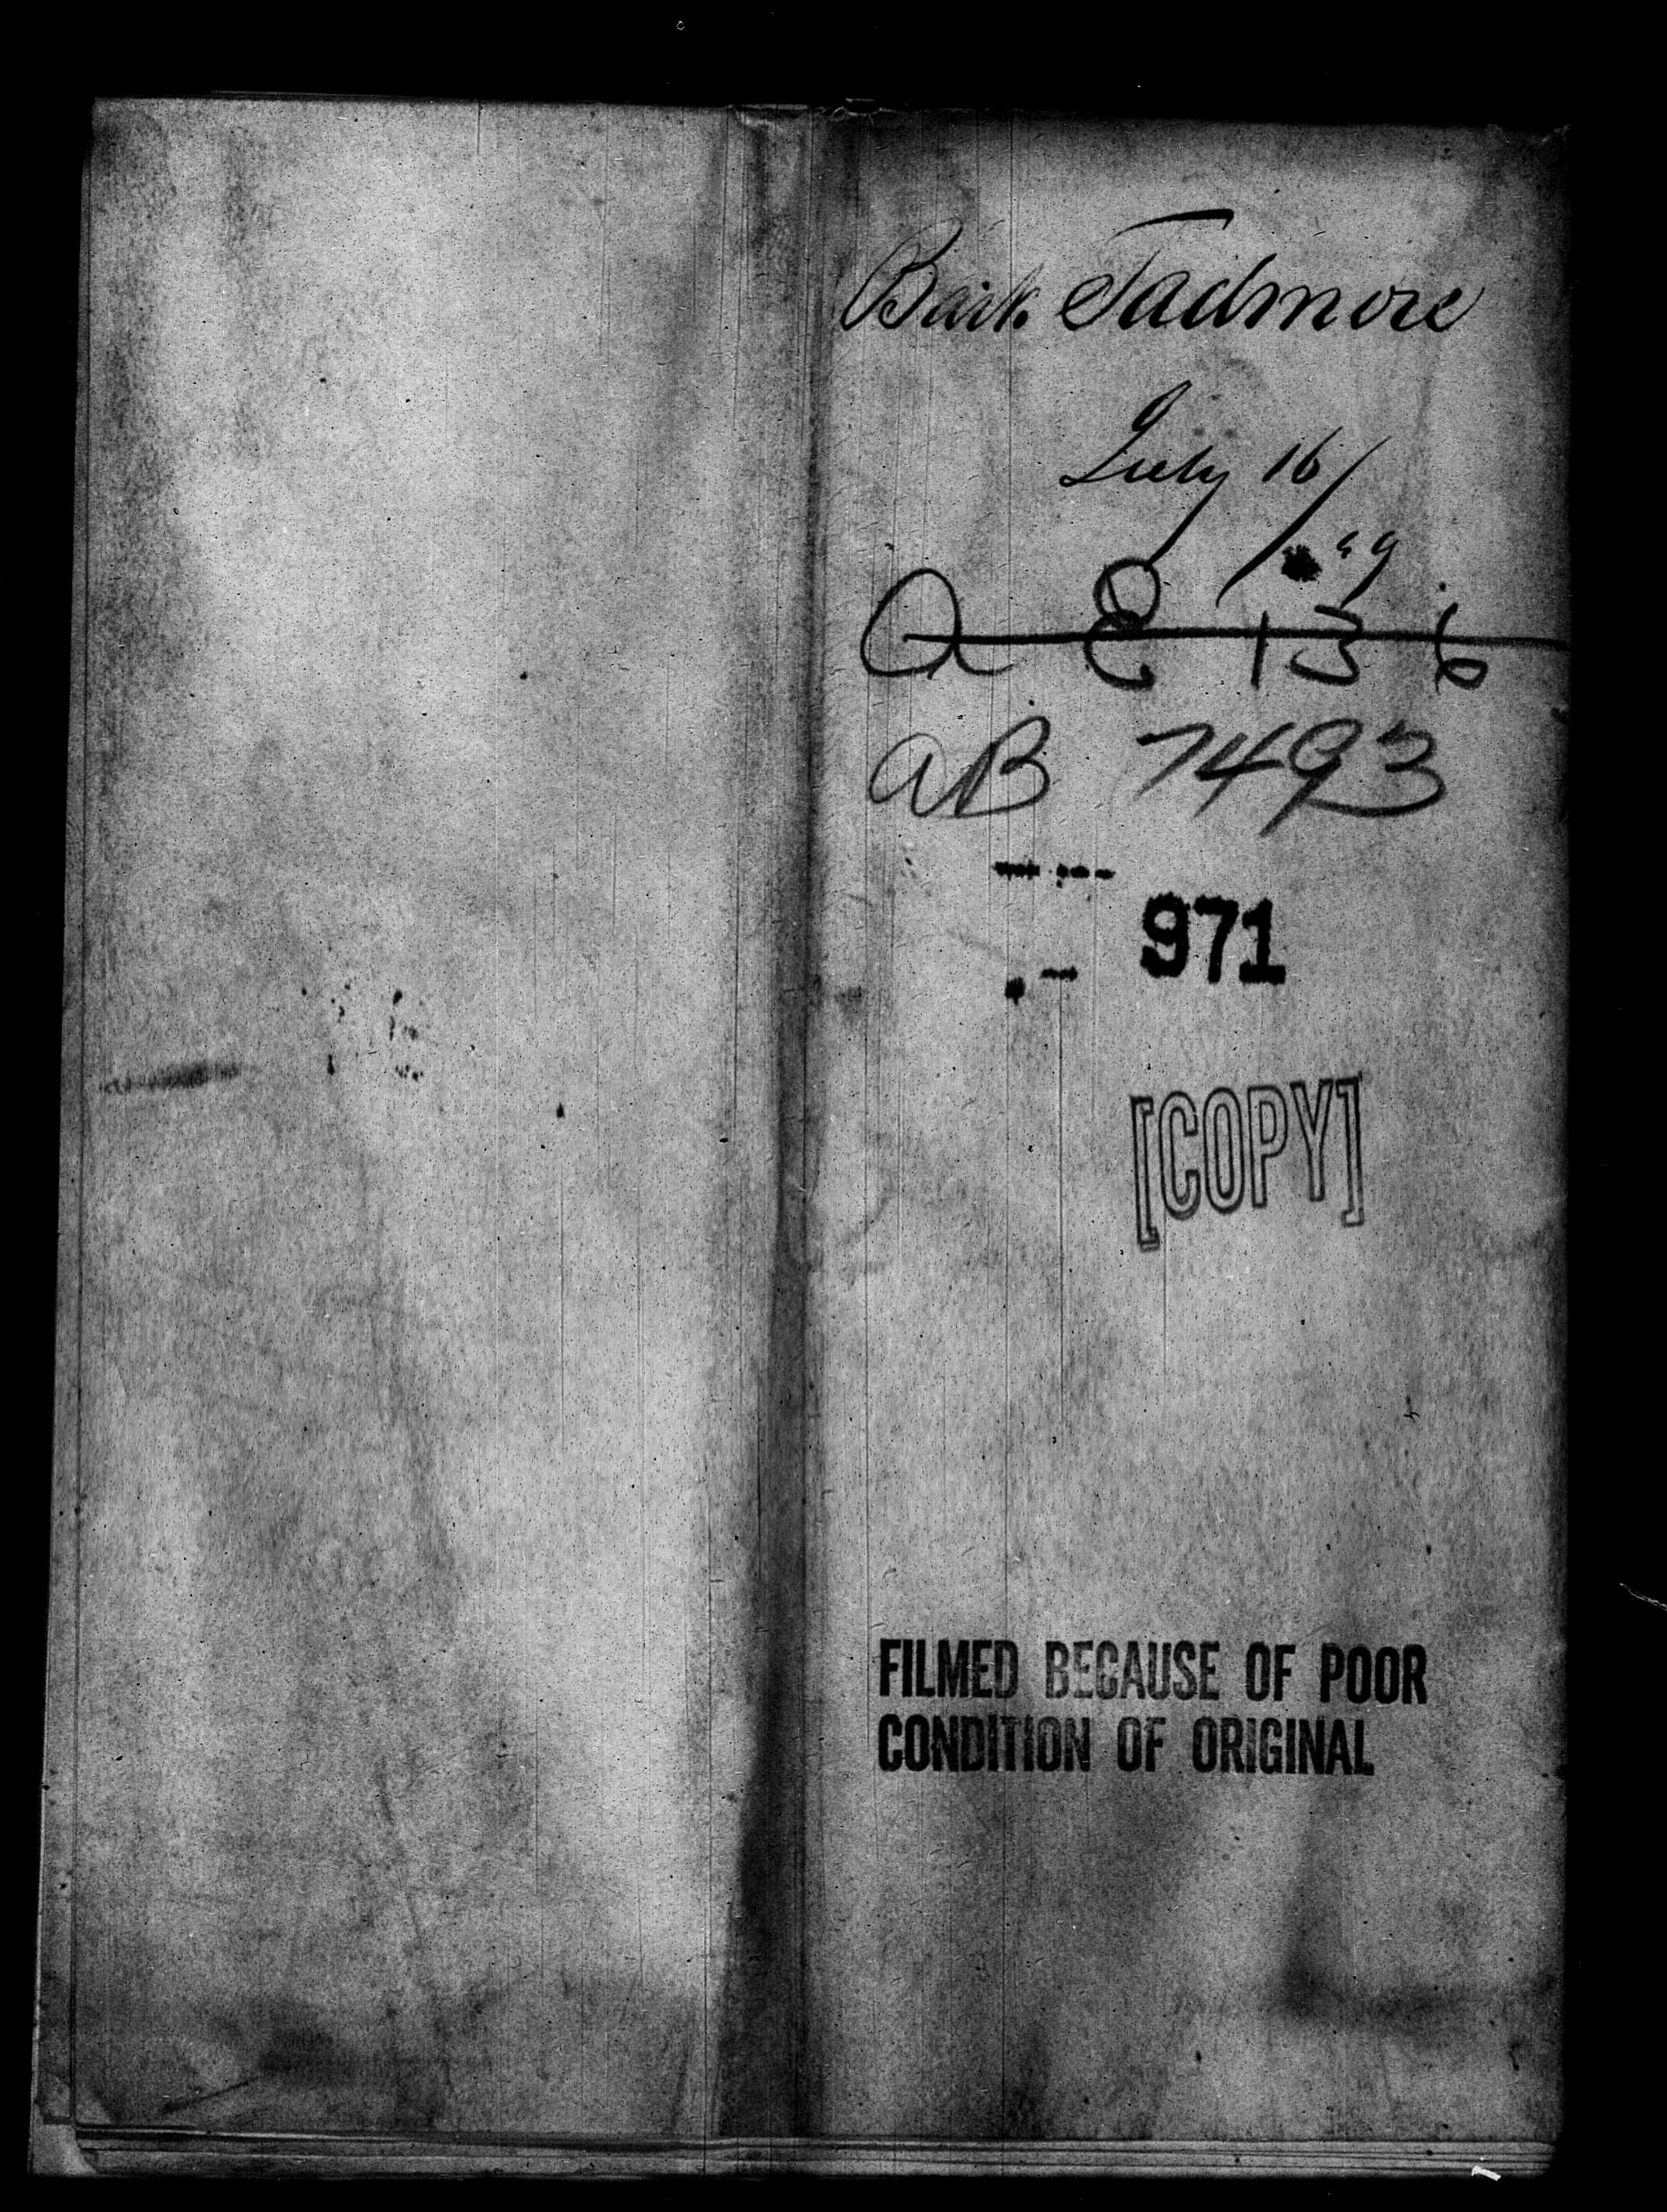 Bark Tadmore
July 16/
49
A E 136
AB 7493
971
[COPY]
FILMED BECAUSE OF POOR
CONDITION OF ORIGINAL